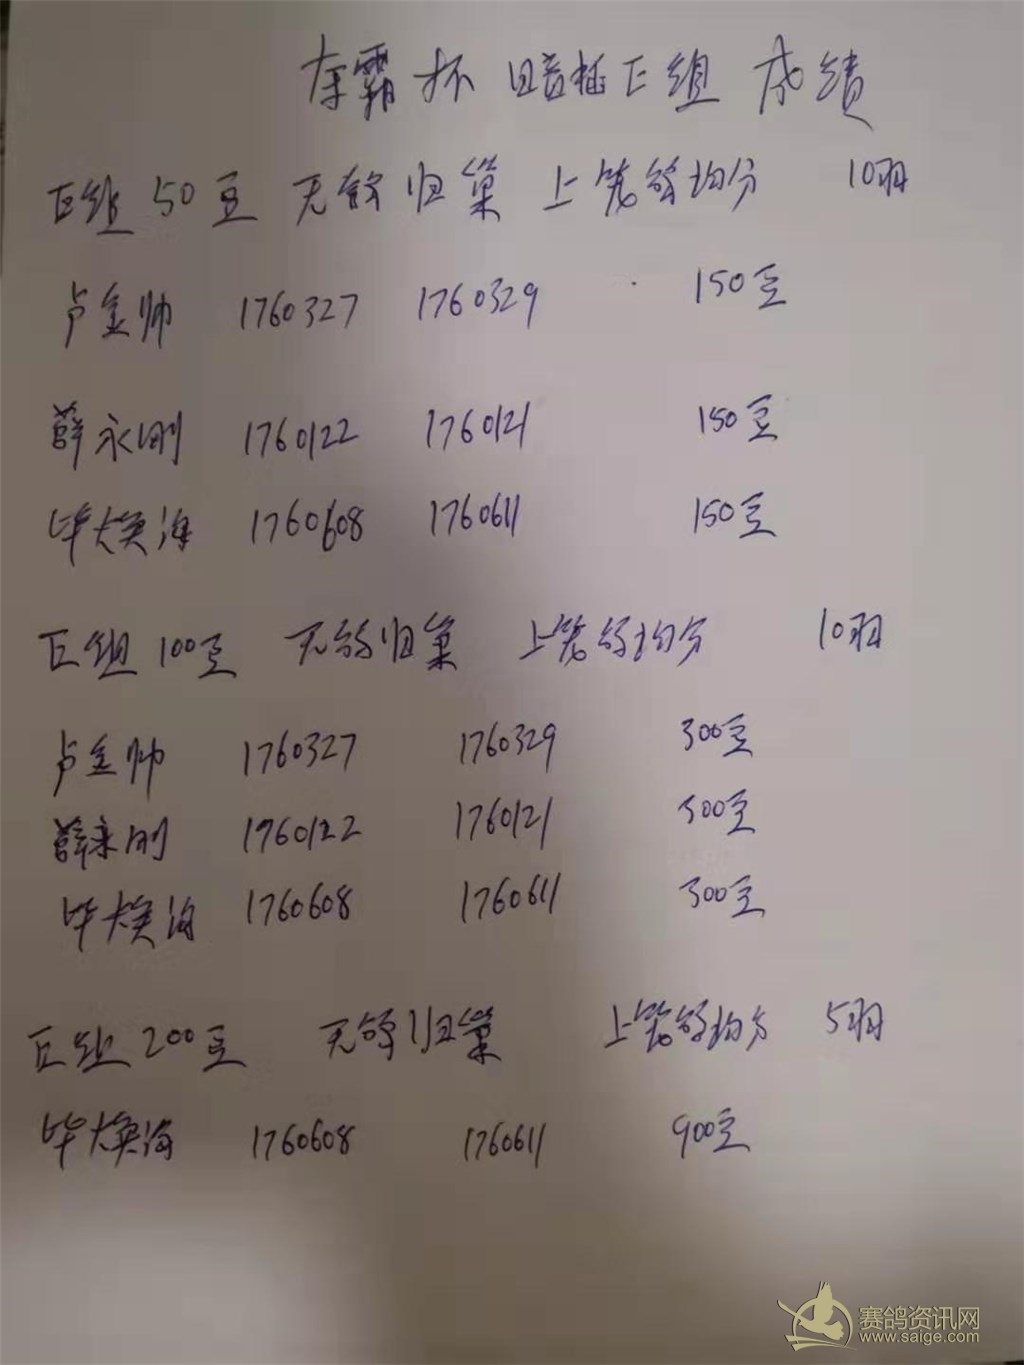 春霸杯 暗插E组 成绩
E组 50豆 无鸽归巢 上笼鸽均分 10羽
卢金帅 1760327 1760329 150豆
薛永刚 1760122 1760121 150豆
毕焕海 1760608 1760611 150豆
E组 100豆 无鸽归巢 上笼鸽均分 10羽
卢金帅 1760327 1760329 300豆
薛永刚 1760122 1760121 300豆
毕焕海 1760608 1760611 300豆
E组 200豆 无鸽归巢 上笼鸽均分 5羽
毕焕海 1760608 1760611 900豆
赛鸽资讯网
www.saige.com